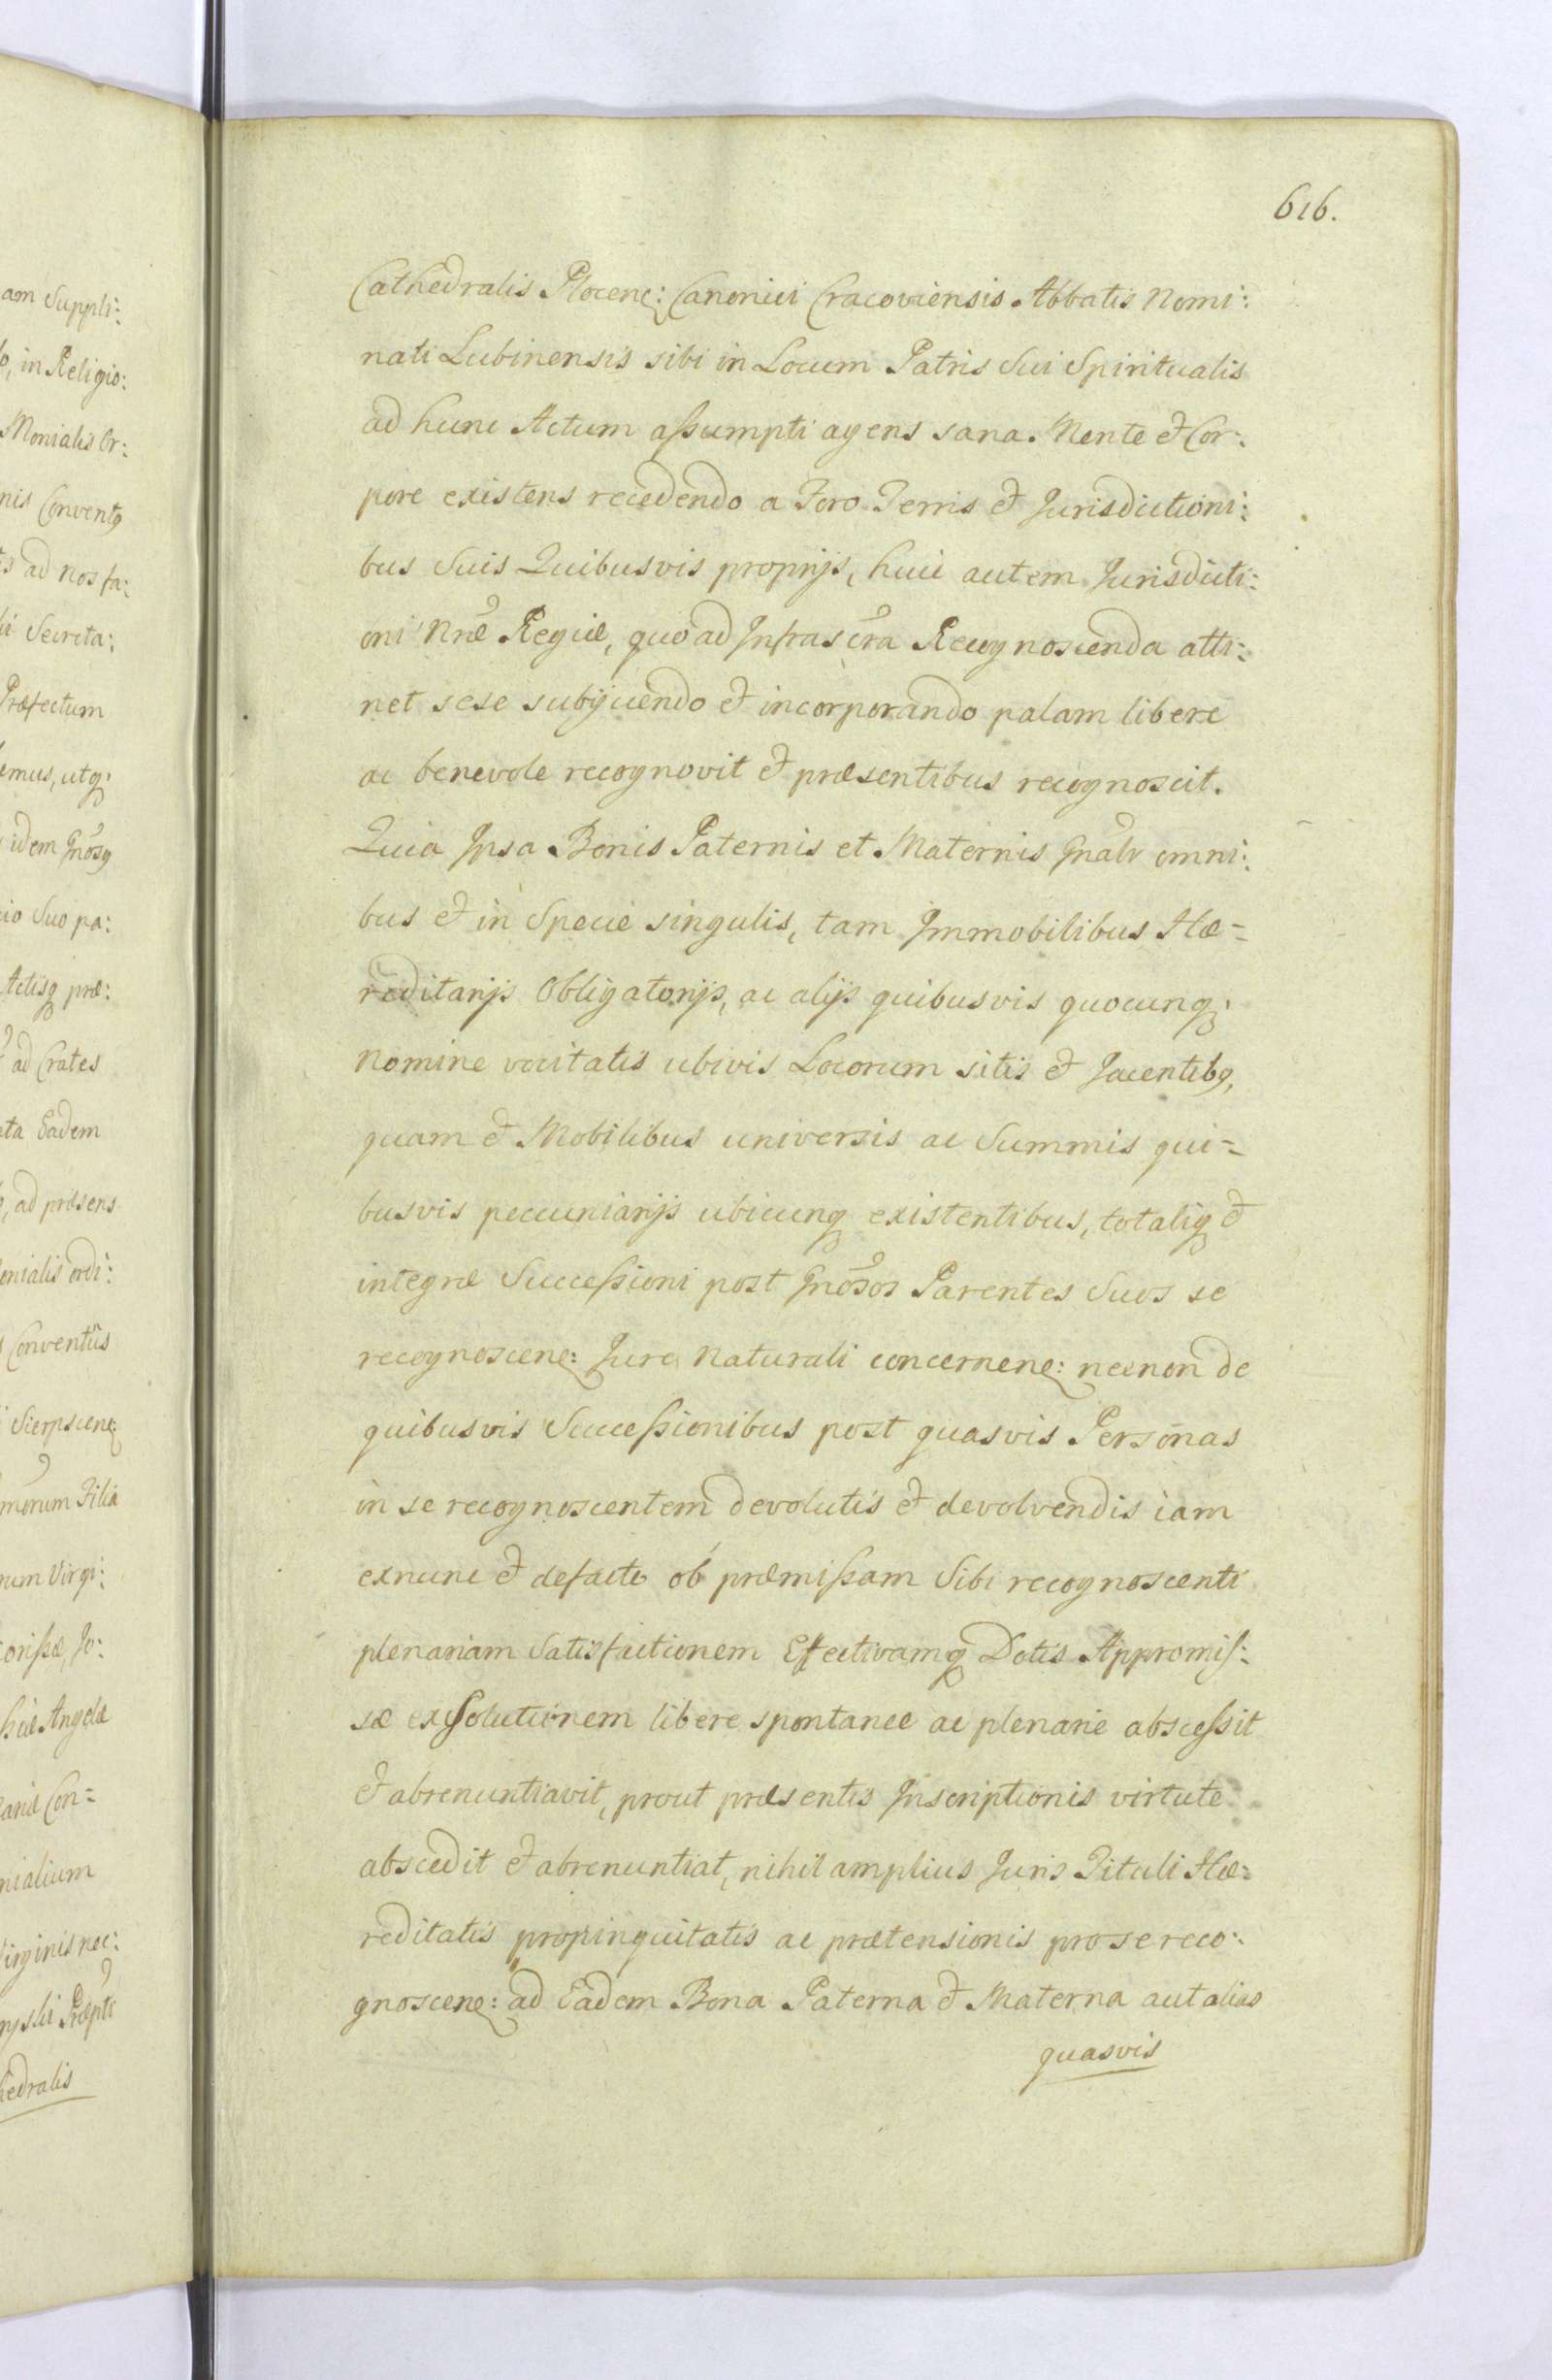 616.
Cathedralis Plocen: Canonici Cracoviensis Abbatis Nomi:
nati Lubinensis sibi in Locum Patris Sui Spiritualis
ad hunc Actum assumpti agens sana Mente et Cor:
pore existens recedendo a Foro Terris et Jurisdictioni:
bus Suis Quibusvis proprijs, huic autem Jurisdicti:
oni Nræ Regiæ, quo ad Infrascra Recognoscenda atti:
net sese subijciendo et incorporando palam libere
ac benevole recognovit et præsentibus recognoscit.
Quia Ipsa Bonis Paternis et Maternis Gnalr omni:
bus et in Specie singulis, tam Immobilibus Hæ=
reditarijs Obligatorijs, ac alijs quibusvis quocunq;
nomine vocitatis ubivis Locorum sitis et Jacentibq,
quam et Mobilibus universis ac Summis qui=
busvis pecuniarijs ubicunq existentibus, totaliq et
integræ Successioni post Gnosos Parentes Suos se
recognoscen: Jure Naturali concernen: necnon de
quibusvis Successionibus post quasvis Personas
in se recognoscentem devolutis et devolvendis iam
exnunc et defacto ob præmissam Sibi recognoscenti
plenariam Satisfactionem Effectivamq Dotis Appromis:
sæ exsolutionem libere spontanee ac plenarie abscessit
et abrenuntiavit, prout præsentis Inscriptionis virtute
abscedit et abrenuntiat, nihil amplius Juris Tituli Hæ=
reditatis propinquitatis ac prætensionis pro se reco:
gnoscen: ad Eadem Bona Paterna et Materna aut alias
quasvis
am Suppli:
in Religio:
Monialis Or:
nis Conventq
ad nos fa:
Secreta:
Præfectum
emus, utq;
idem Gnosq
cio Suo pa:
Actisq præ:
ad Crates
ata Eadem
ad præsens
onialis ordi:
Conventûs
Sierpscen:
morum Filia
rum Virgi:
Angelæ
Con=
nialium
Virginis nec:
Præpti
hedralis